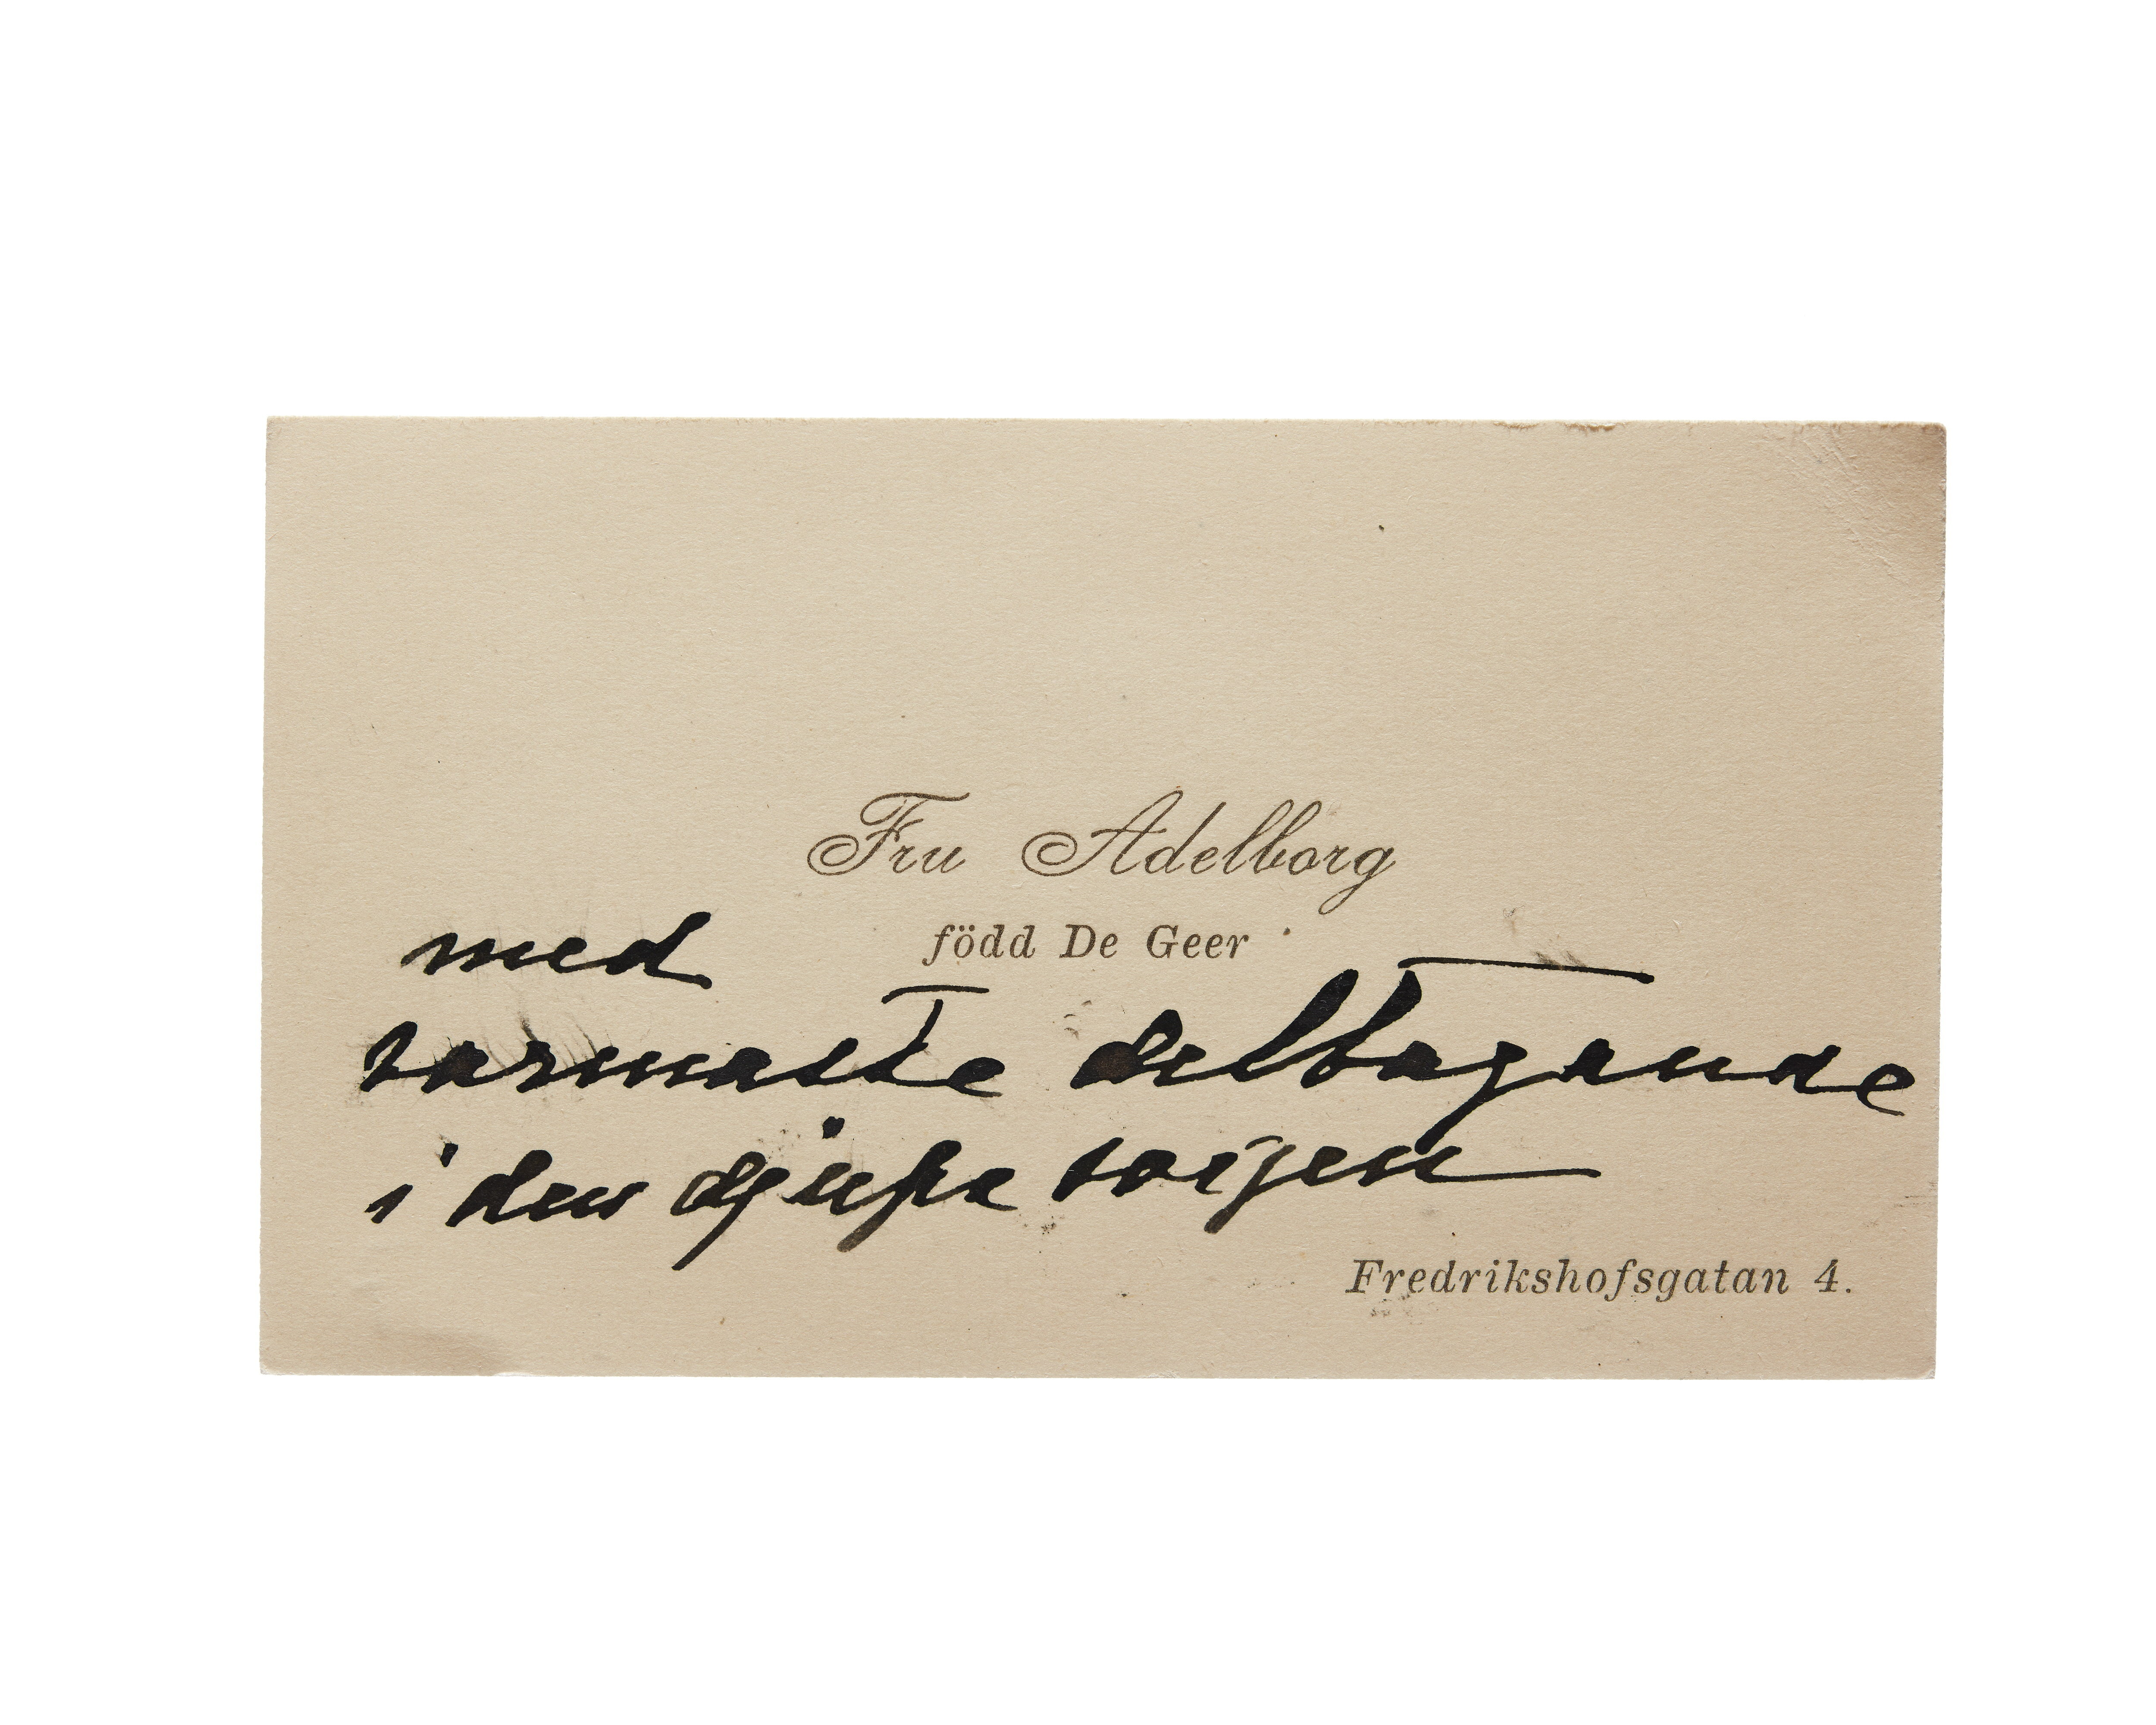 Fru Adelborg
född De Geer
med
varmaste deltagande
i den djupa sorgen
Fredrikshofsgatan 4.